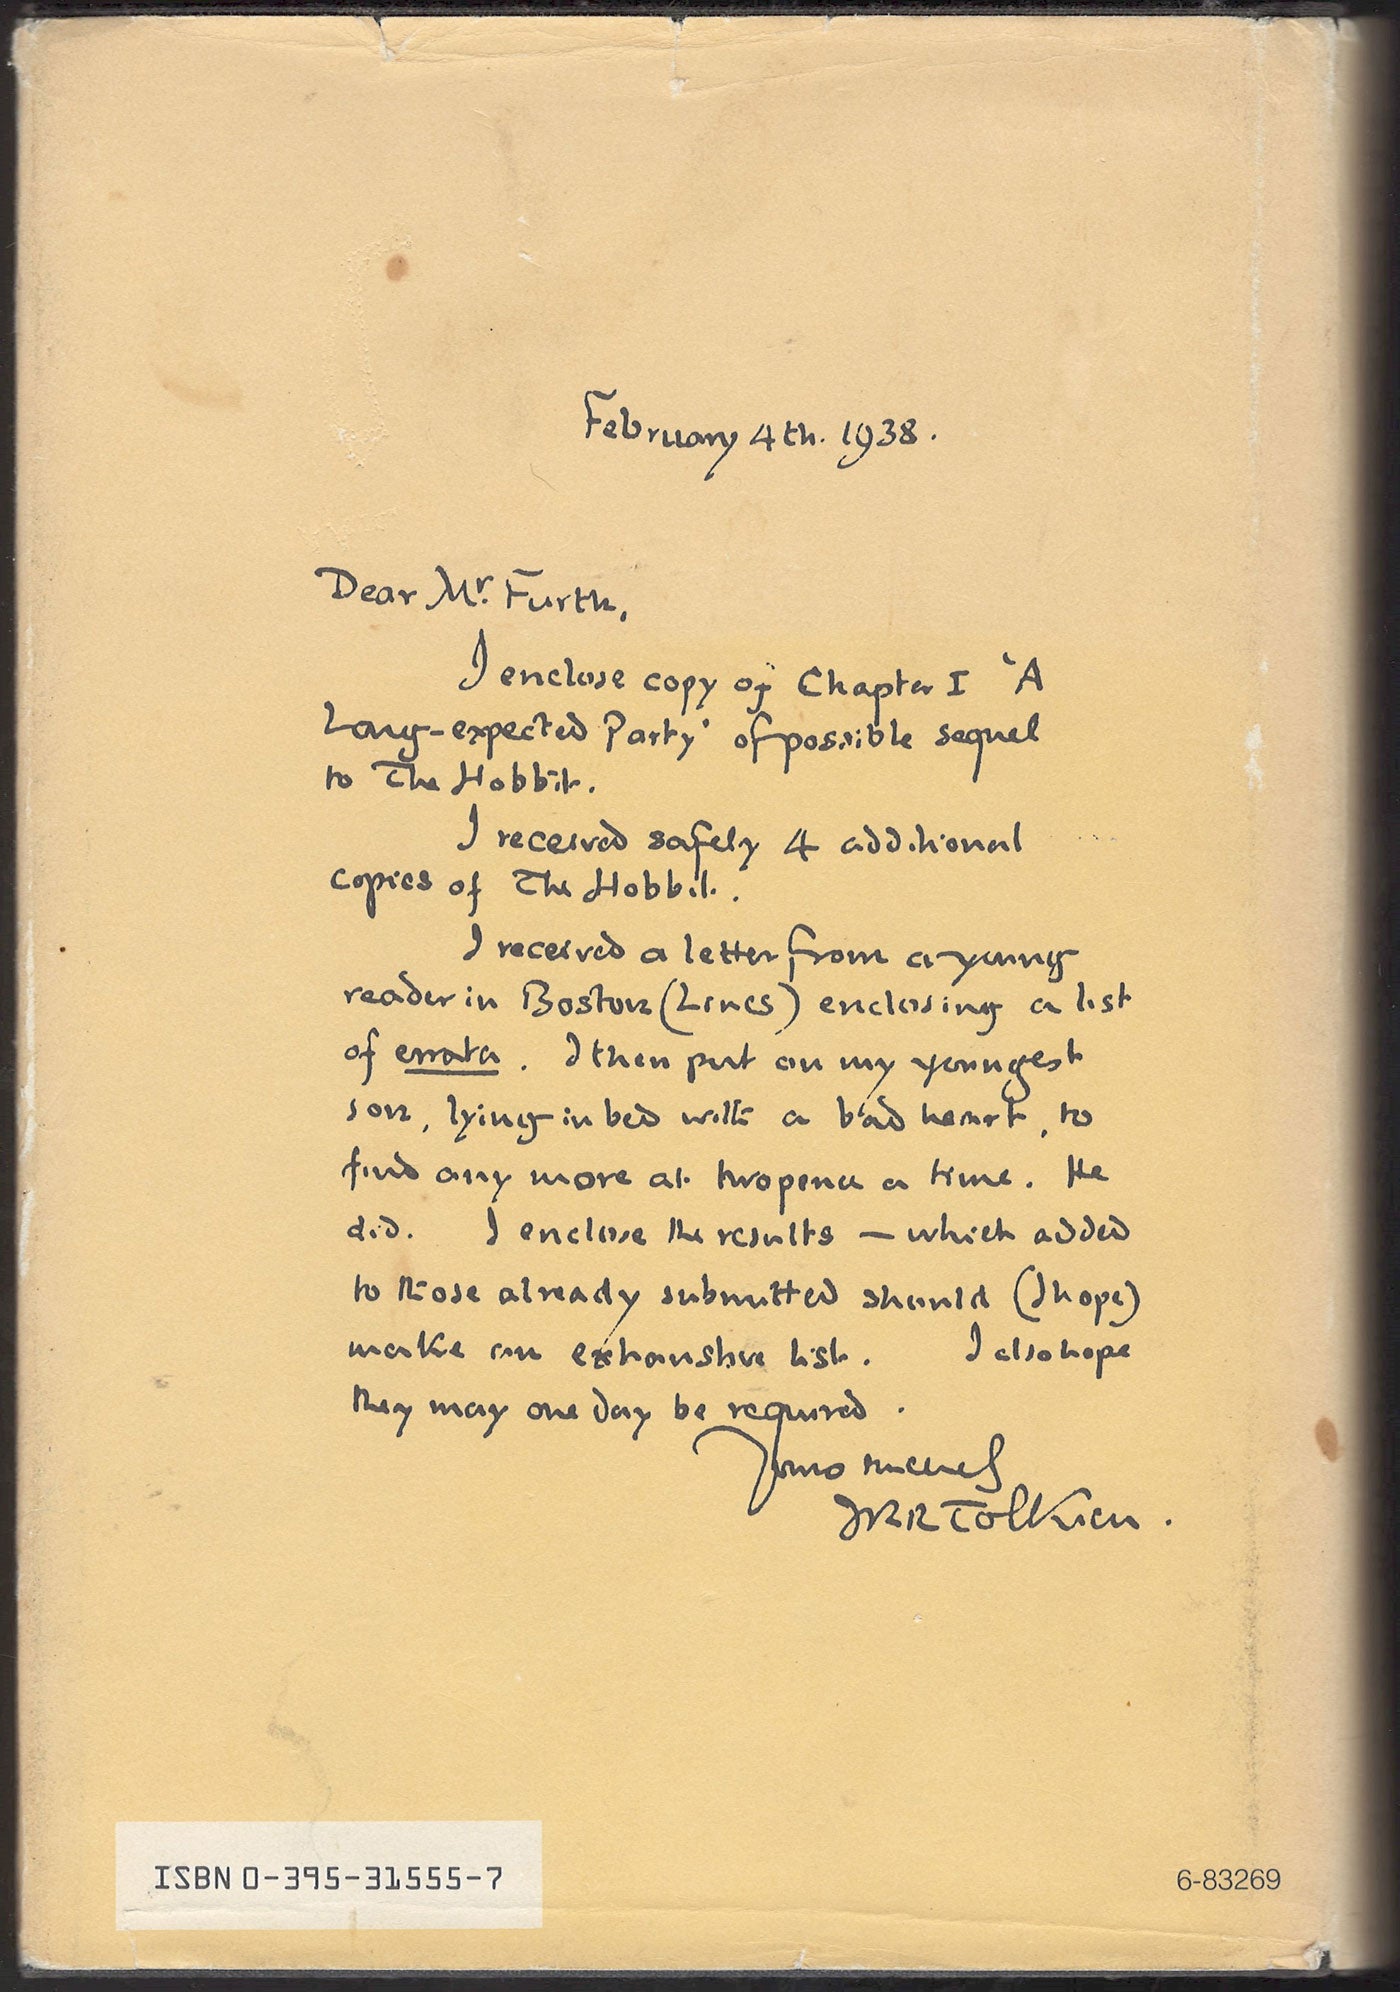 February 4th. 1938.
Dear Mr. Furth,
I enclose copy of Chapter I 'A
Long-expected Party' of possible sequel
to The Hobbit.
I received safely 4 additional
copies of The Hobbit.
I received a letter from a young
reader in Boston (Lincs) enclosing a list
of errata. I then put on my youngest
son, lying in bed with a bad heart, to
find any more at twopence a time. He
did. I enclose the results — which added
to those already submitted should (I hope)
make an exhaustive list. I also hope
they may one day be required.
Yours sincerely
JRR Tolkien.
ISBN 0-395-31555-7
6-83269